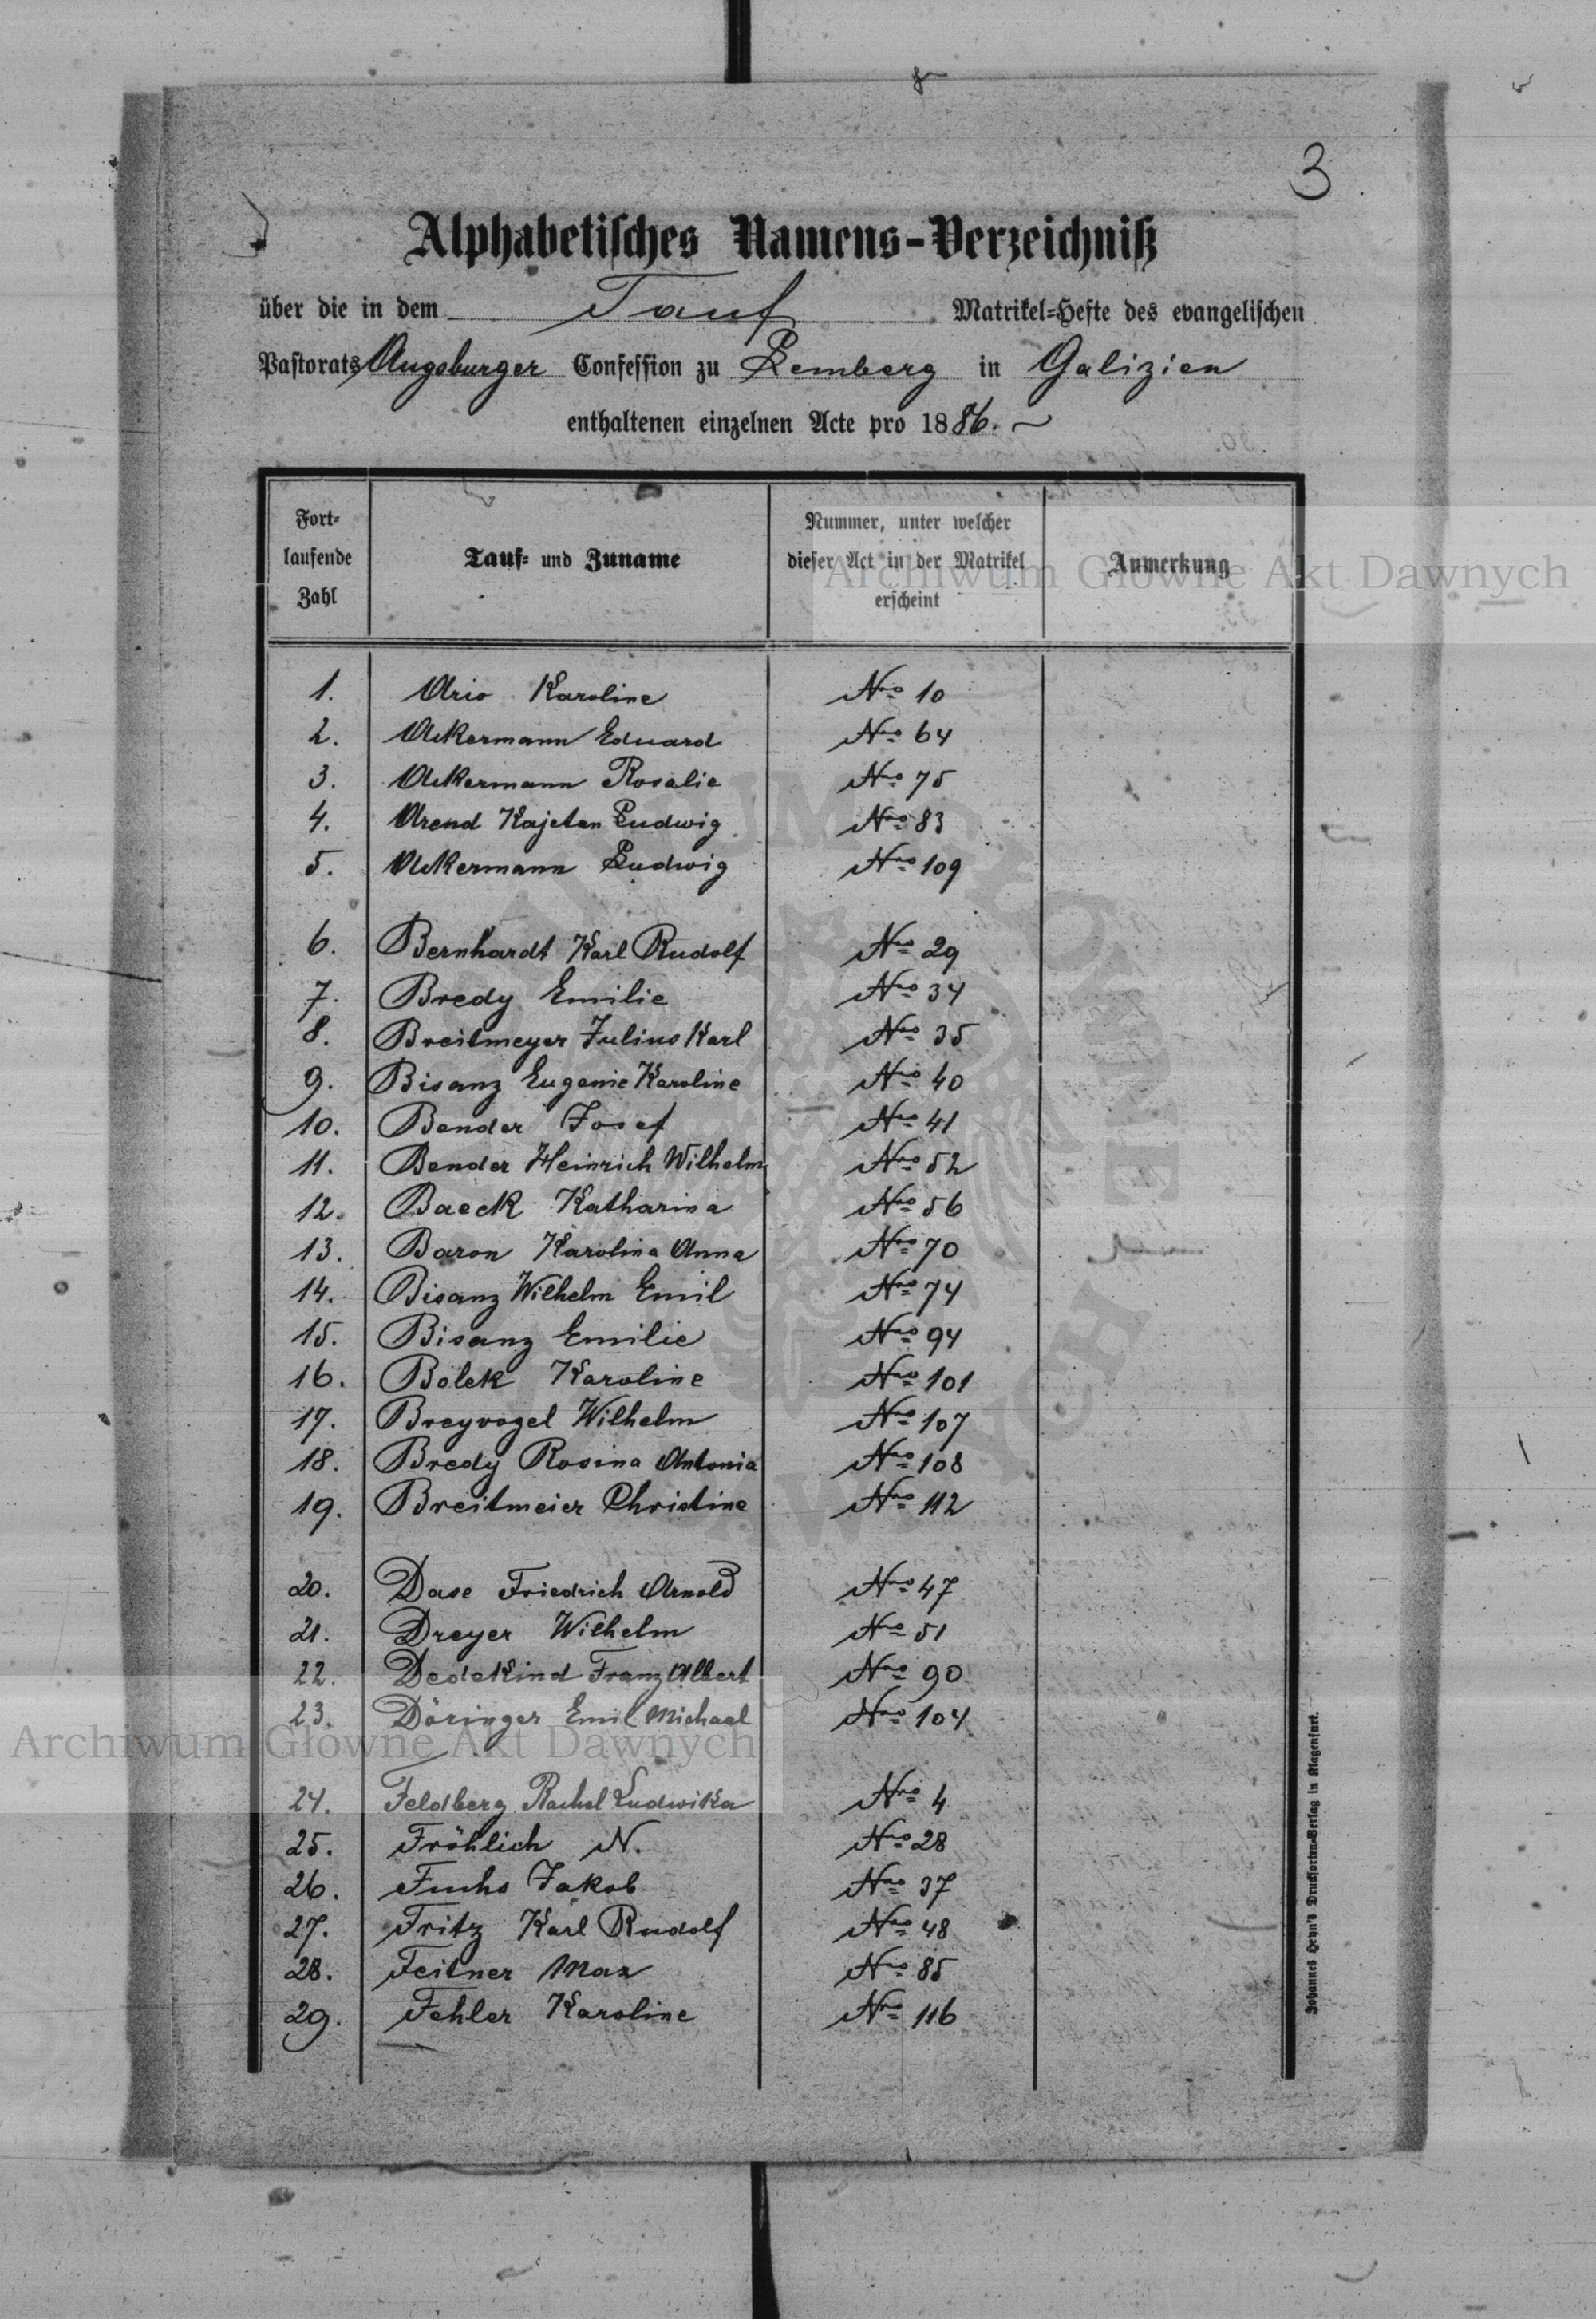 3
Alphabetisches Namens-Verzeichniß
über die in dem Tauf Matrikel-Hefte des evangelischen
Pastorats Augsburger Confession zu Lemberg in Galizien
enthaltenen einzelnen Acte pro 1886.
Fort-laufende Zahl Tauf- und Zuname Nummer, unter welcher dieser Act in der Matrikel erscheint Anmerkung
1. Ario Karoline Nro 10
2. Ackermann Eduard Nro 64
3. Ackermann Rosalie Nro 75
4. Arend Kajetan Ludwig Nro 83
5. Ackermann Ludwig Nro 109
6. Bernhardt Karl Rudolf Nro 29
7. Bredy Emilie Nro 34
8. Breitmeyer Julius Karl Nro 35
9. Bisanz Eugenie Karoline Nro 40
10. Bender Josef Nro 41
11. Bender Heinrich Wilhelm Nro 52
12. Baeck Katharina Nro 56
13. Baron Karolina Anna Nro 70
14. Bisanz Wilhelm Emil Nro 74
15. Bisanz Emilie Nro 94
16. Bolek Karoline Nro 101
17. Breyvogel Wilhelm Nro 107
18. Bredy Rosina Antonia Nro 108
19. Breitmeier Christine Nro 112
20. Dase Friedrich Arnold Nro 47
21. Dreyer Wilhelm Nro 51
22. Dedekind Franz Albert Nro 90
23. Döringer Emil Michael Nro 104
24. Feldberg Rachel Ludwika Nro 4
25. Fröhlich N. Nro 28
26. Fuchs Jakob Nro 37
27. Fritz Karl Rudolf Nro 48
28. Feitner Max Nro 85
29. Fehler Karoline Nro 116
Johannes Heyn's Drucksorten-Verlag in Klagenfurt.
Archiwum Główne Akt Dawnych
Archiwum Główne Akt Dawnych